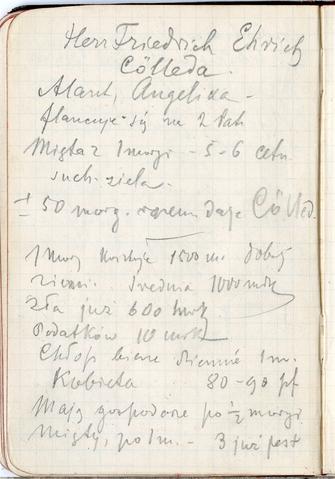 Herr Friedrich Ehrich
Cölleda.
Alant, Angelika -
flancuje się na 2 lata
Mięta z 1 morgi - 5-6 cetn.
such. ziela.
± 50 morg. razem daje Cölled.
1 morg kosztuje 1500 m. dobrej
ziemi. Średnia 1000 mrk
Zła już 600 mrk
Podatków 10 mrk
Chłop bierze dziennie 1 m.
Kobieta 80-90 pf
Mają gospodarze po ½ morgi
Mięty, po 1 m. - 3 już jest